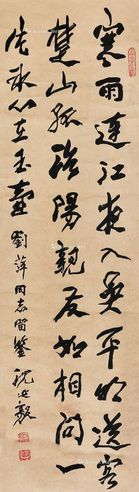 寒雨連江夜入吳平明送客
楚山孤洛陽親友如相問一
片冰心在玉壺 劉萍同志留鑒